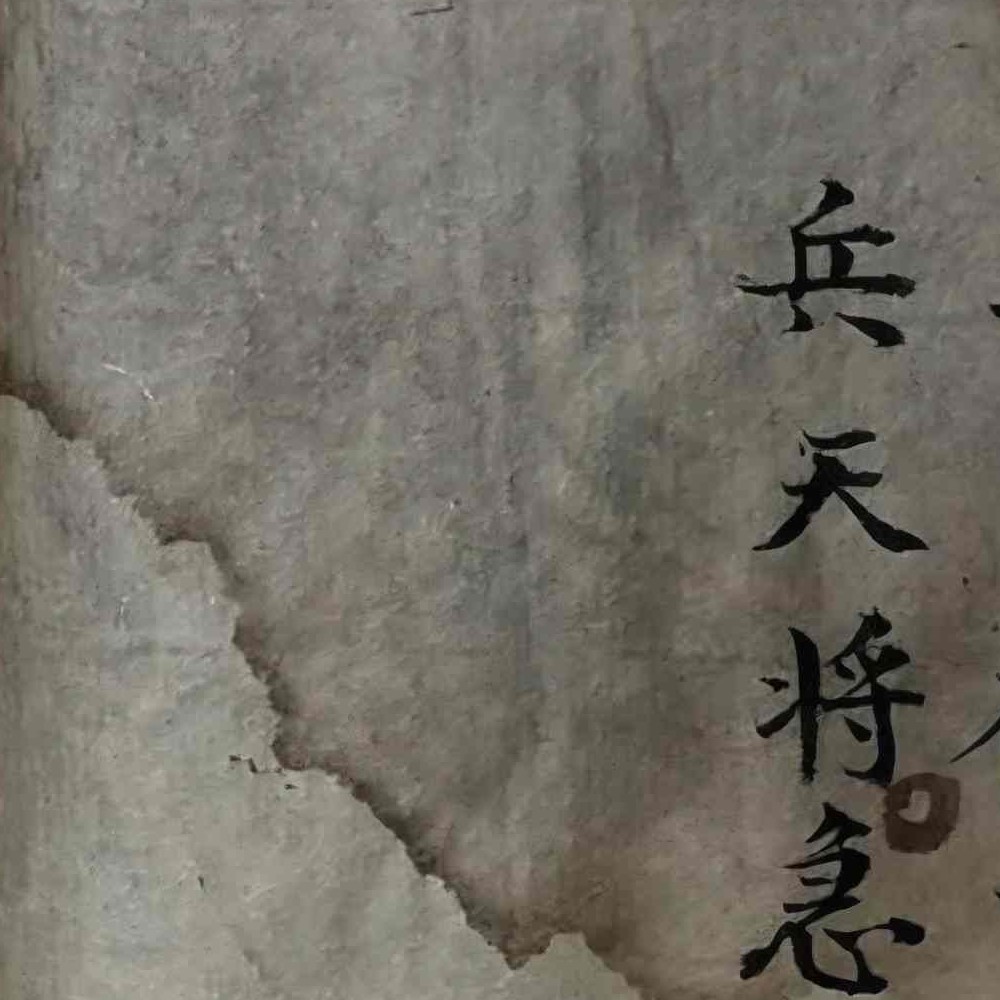 兵天将急